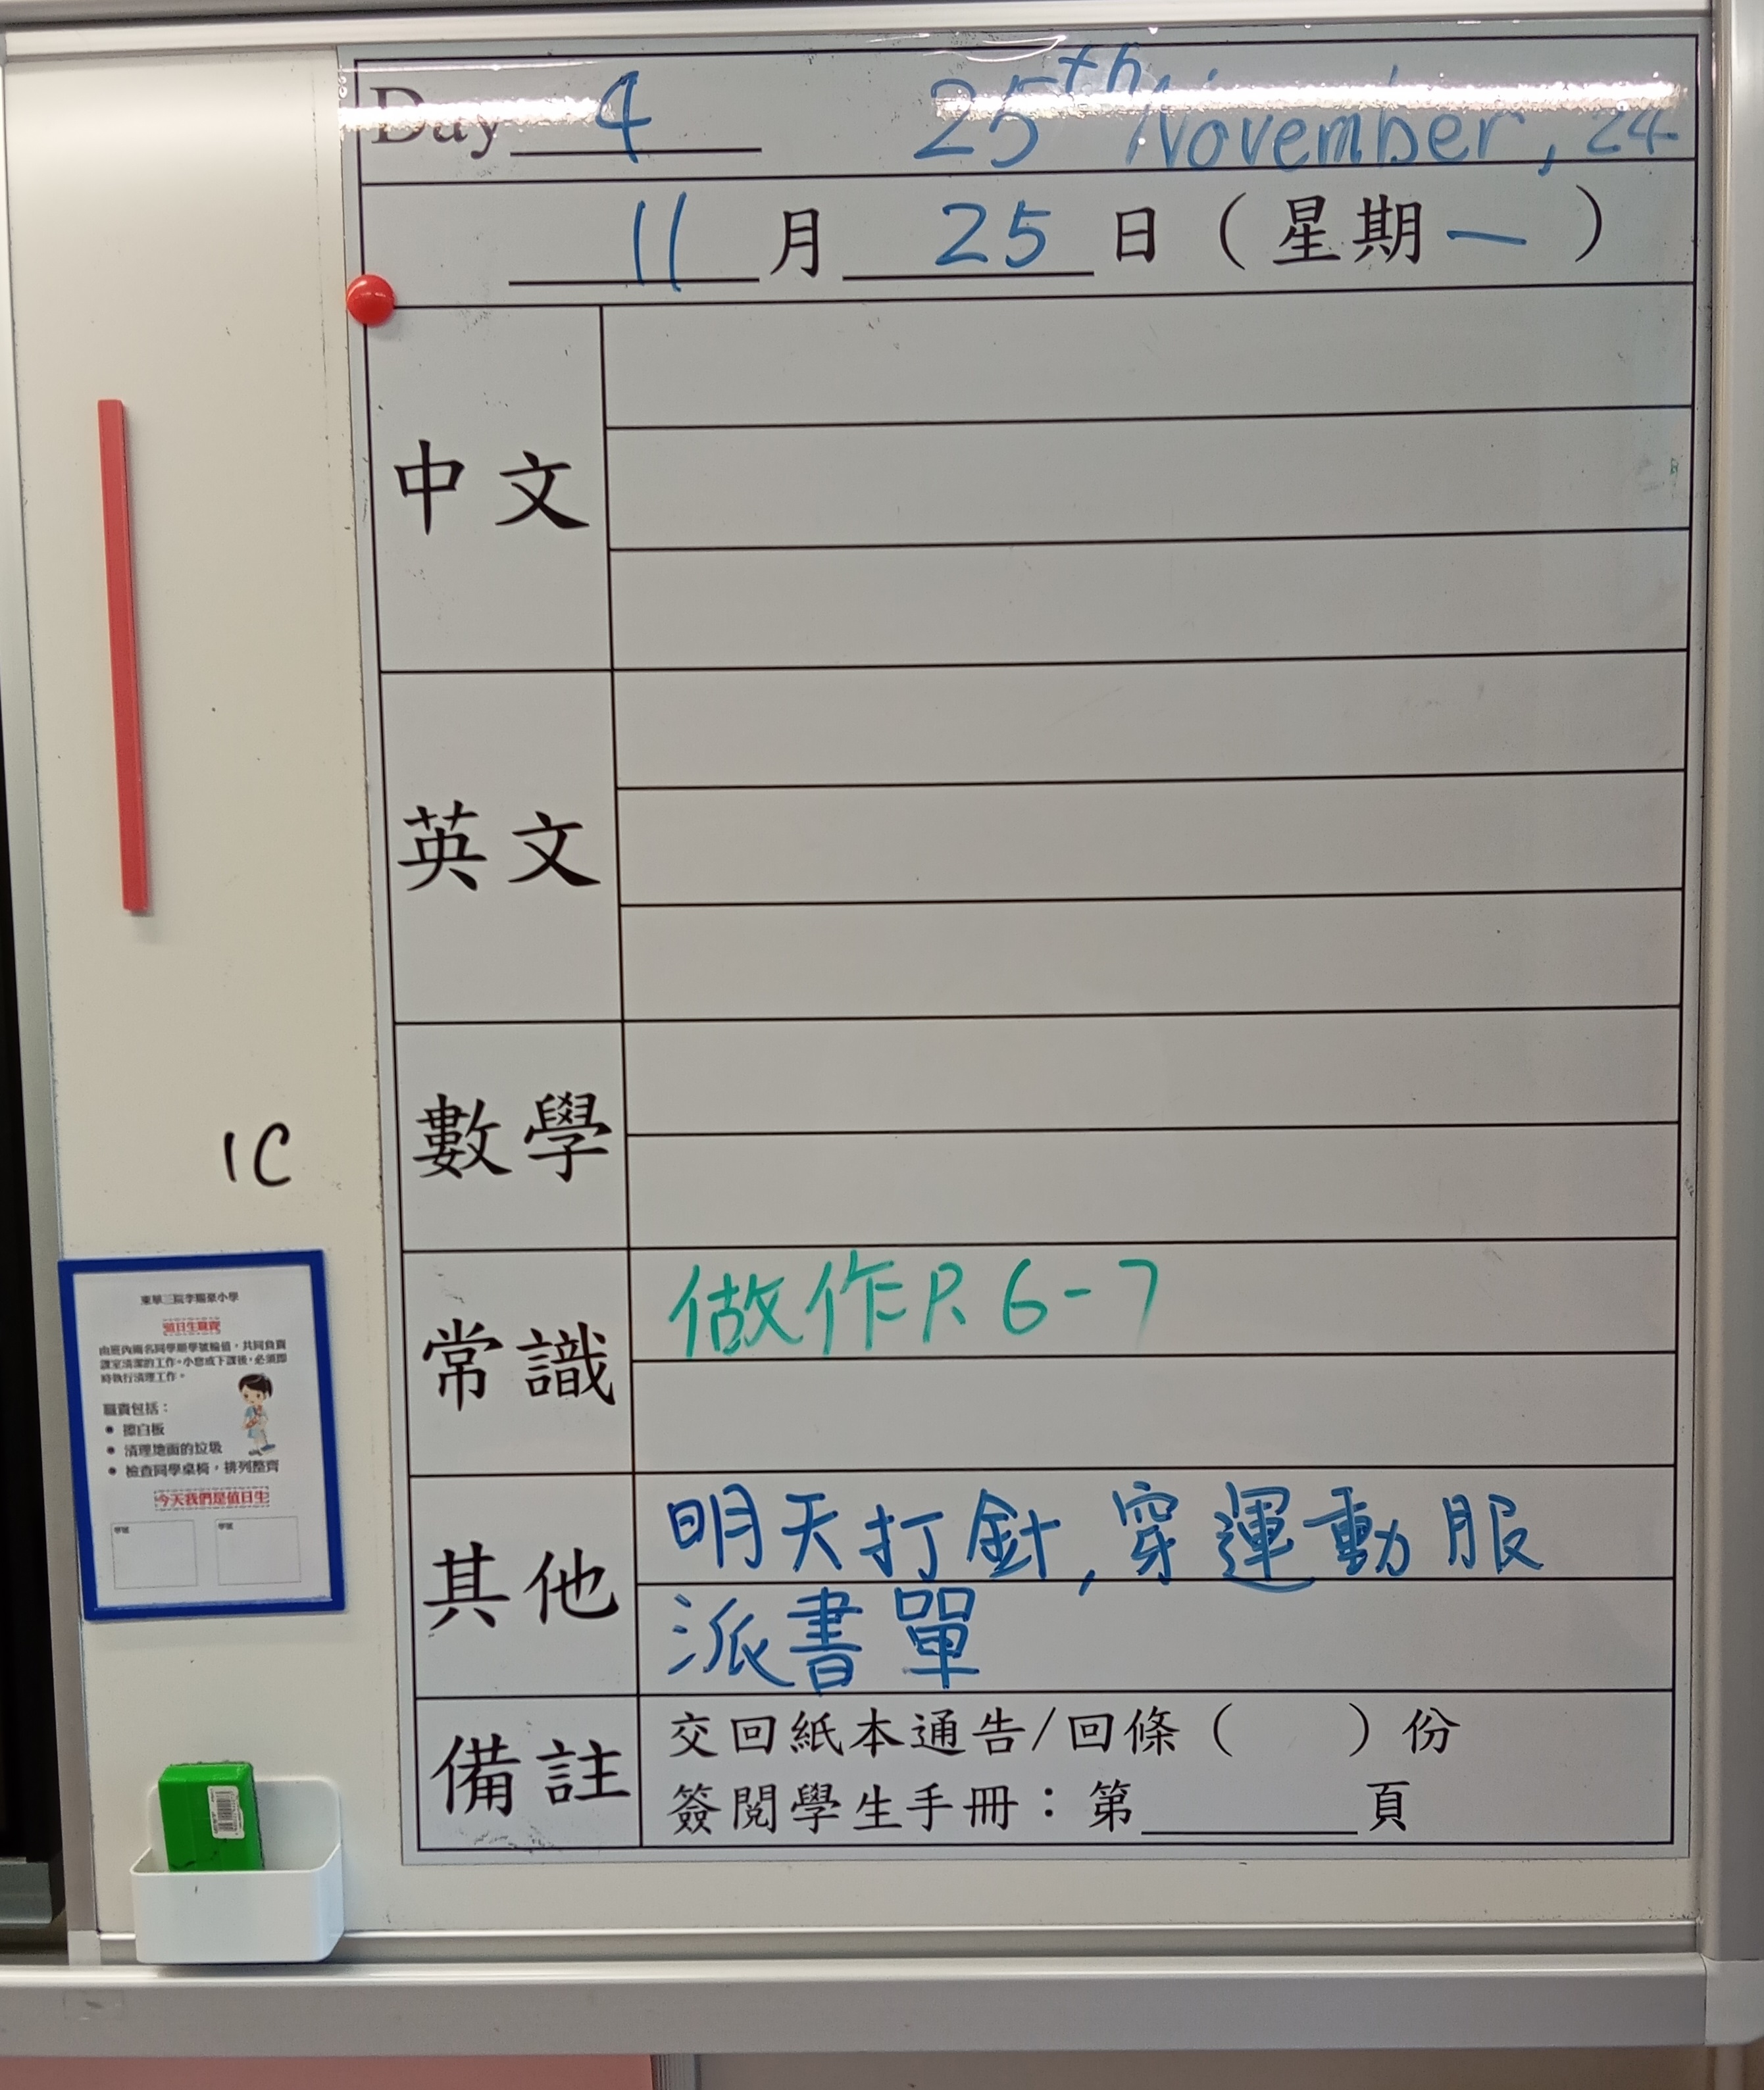 Day 4 25th November, 24
11月25日（星期一）
中文
英文
數學
常識
做作P. 6-7
其他
明天打針,穿運動服
派書單
備註
交回紙本通告/回條（　　）份
簽閱學生手冊：第______頁
1C
東華三院李賜豪小學
值日生職責
由班內兩名同學順學號輪值，共同負責
課室清潔的工作。小息或下課後，必須即
時執行清理工作。
職責包括：
● 擦白板
● 清理地面的垃圾
● 檢查同學桌椅，排列整齊
今天我們是值日生
學號 學號